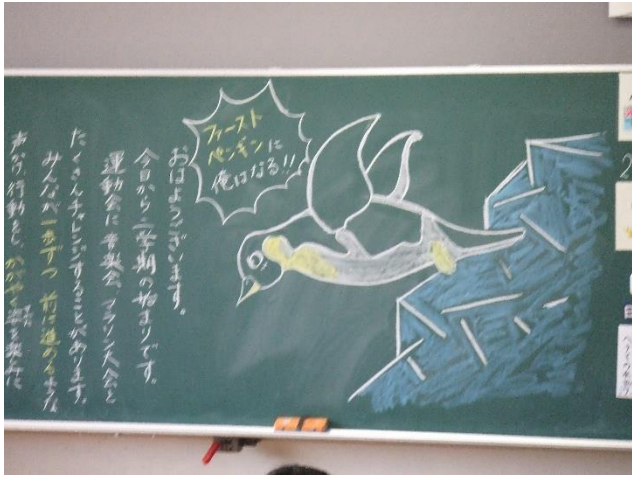 ファースト
ペンギンに
俺はなる!!
おはようございます。
今日から二学期の始まりです。
運動会に音楽会、マラソン大会と
たくさんチャレンジすることがあります。
みんなが一歩ずつ 前に進めるような
声かけ、行動をし、かがやく姿を楽しみに
2
日